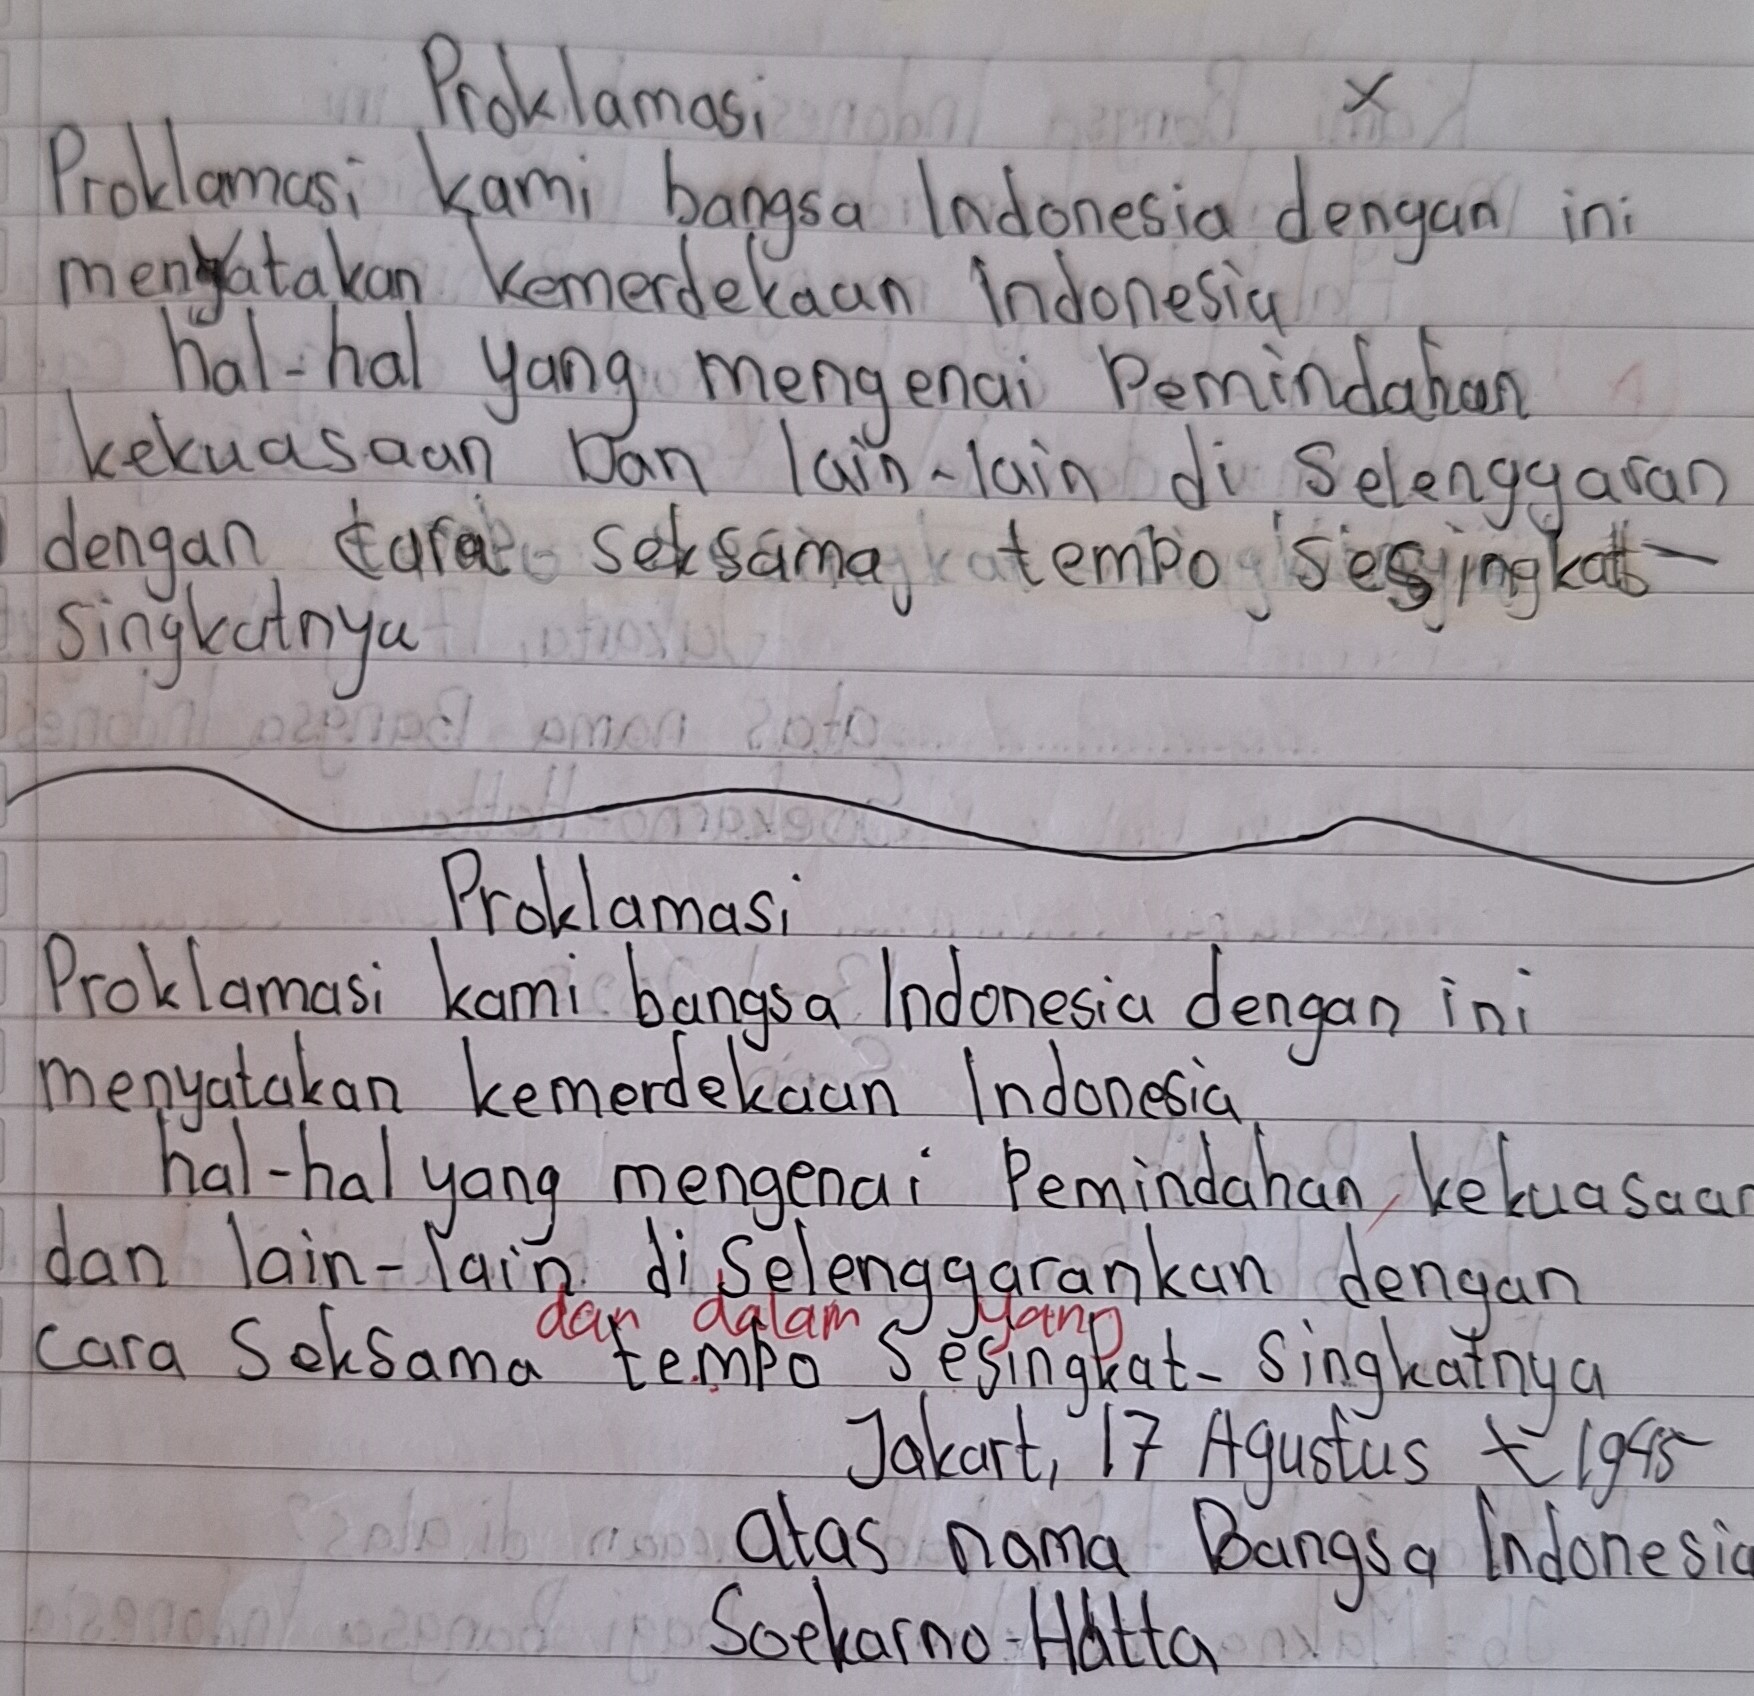 Proklamasi x
Proklamasi kami bangsa Indonesia dengan ini
menyatakan kemerdekaan indonesia
hal-hal yang mengenai Pemindahan
kekuasaan Dan lain-lain di Selenggaran
dengan cara seksama tempo sesingkat-
singkatnya
Proklamasi
Proklamasi kami bangsa Indonesia dengan ini
menyatakan kemerdekaan Indonesia
hal-hal yang mengenai Pemindahan, kekuasaan
dan lain-lain di Selenggarankan dengan
dan dalam yang
cara Seksama tempo Sesingkat-Singkatnya
Jakart, 17 Agustus 1945
atas nama Bangsa Indonesia
Soekarno-Hatta